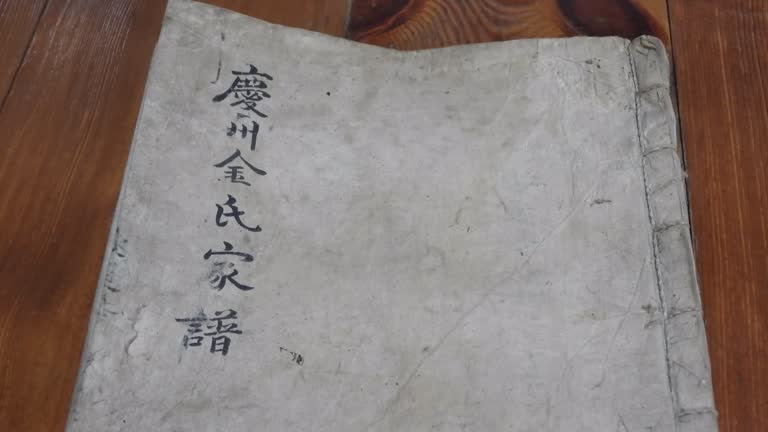 慶州金氏家譜